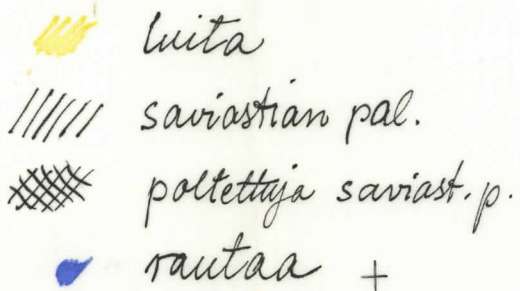 luita
saviastian pal.
poltettuja saviast. p.
rautaa +